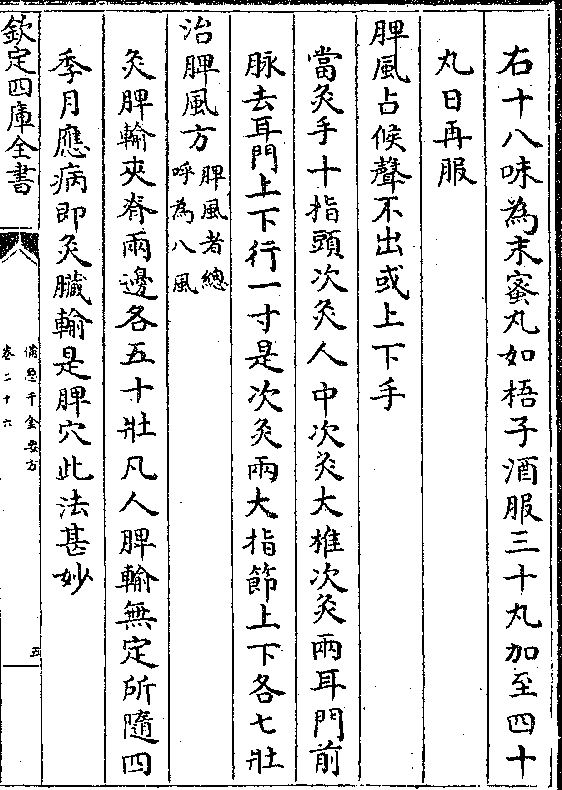 右十八味為末蜜丸如梧子酒服三十丸加至四十
丸日再服
脾風占候聲不出或上下手
當灸手十指頭次灸人中次灸大椎次灸兩耳門前
脉去耳門上下行一寸是次灸兩大指節上下各七壯
治脾風方脾風者總呼為八風
灸脾輸夾脊兩邊各五十壯凡人脾輸無定所隨四
季月應病即灸臟輸是脾穴此法甚妙
欽定四庫全書
備急千金要方
卷二十六
五